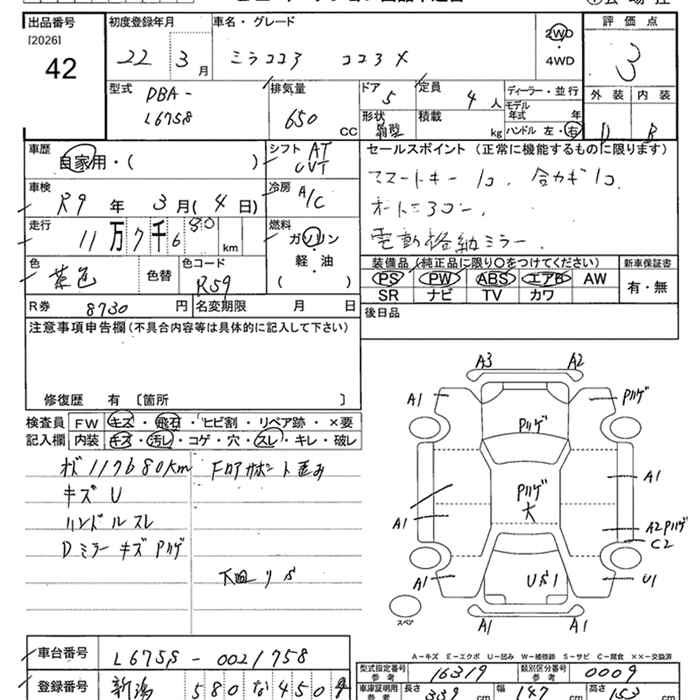 出品番号 初度登録年月 車名・グレード 2WD・4WD 評価点
[2026]
42
22 3月 ミラココア ココアX 3
型式 DBA-L675S
排気量 650 CC
ドア 5
定員 4人
ディーラー・並行
モデル年式 年
形状 箱型
積載 kg
ハンドル 左・右
外装 内装
D B
車歴 自家用・( )
シフト AT CVT
セールスポイント(正常に機能するものに限ります)
スマートキー1コ、合カギ1コ
オートエアコン、
電動格納ミラー、
車検 R9年 3月(4日)
冷房 A/C
走行 11万7千680km
燃料 ガソリン・軽・油( )
色 茶色 色替
色コード R59
装備品(純正品に限り○をつけてください) 新車保証書
PS PW ABS エアB AW 有・無
SR ナビ TV カワ
R券 8730円 名変期限 月 日
後日品
注意事項申告欄(不具合内容等は具体的に記入して下さい)
修復歴 有 〔箇所 〕
検査員記入欄
FW キズ・飛石・ヒビ割・リペア跡・×要
内装 キズ・汚し・コゲ・穴・スレ・キレ・破レ
117680km
キズ U
ハンドルスレ
Dミラー キズ Pハゲ
下廻りサビ
A3 A2
A1 Pハゲ
Pハゲ
Pハゲ大
A1
A1 A2Pハゲ
C2
A1 Uサ1 U1
スペア
A1 A1
A-キズ E-エクボ U-凹み W-補修跡 S-サビ C-腐食 ××-交換済
車台番号 L675S-0021758
型式指定番号 参考 16319 類別区分番号 参考 0009
登録番号 新潟 580 な 450
車庫証明用 参考 長さ 339 cm 幅 147 cm 高さ 153 cm